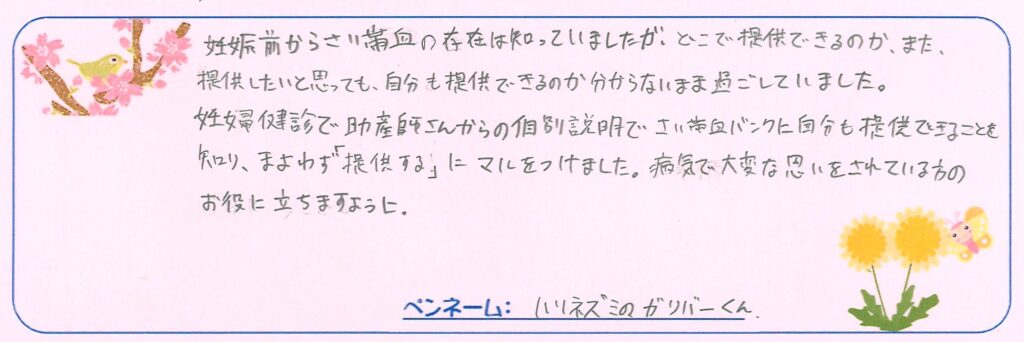 妊娠前からさい帯血の存在は知っていましたが、どこで提供できるのか、また、
提供したいと思っても、自分も提供できるのか分からないまま過ごしていました。
妊婦健診で助産師さんからの個別説明でさい帯血バンクに自分も提供できることを
知り、まよわず「提供する」にマルをつけました。病気で大変な思いをされている方の
お役に立ちますように。
ペンネーム: ハリネズミのガリバーくん.